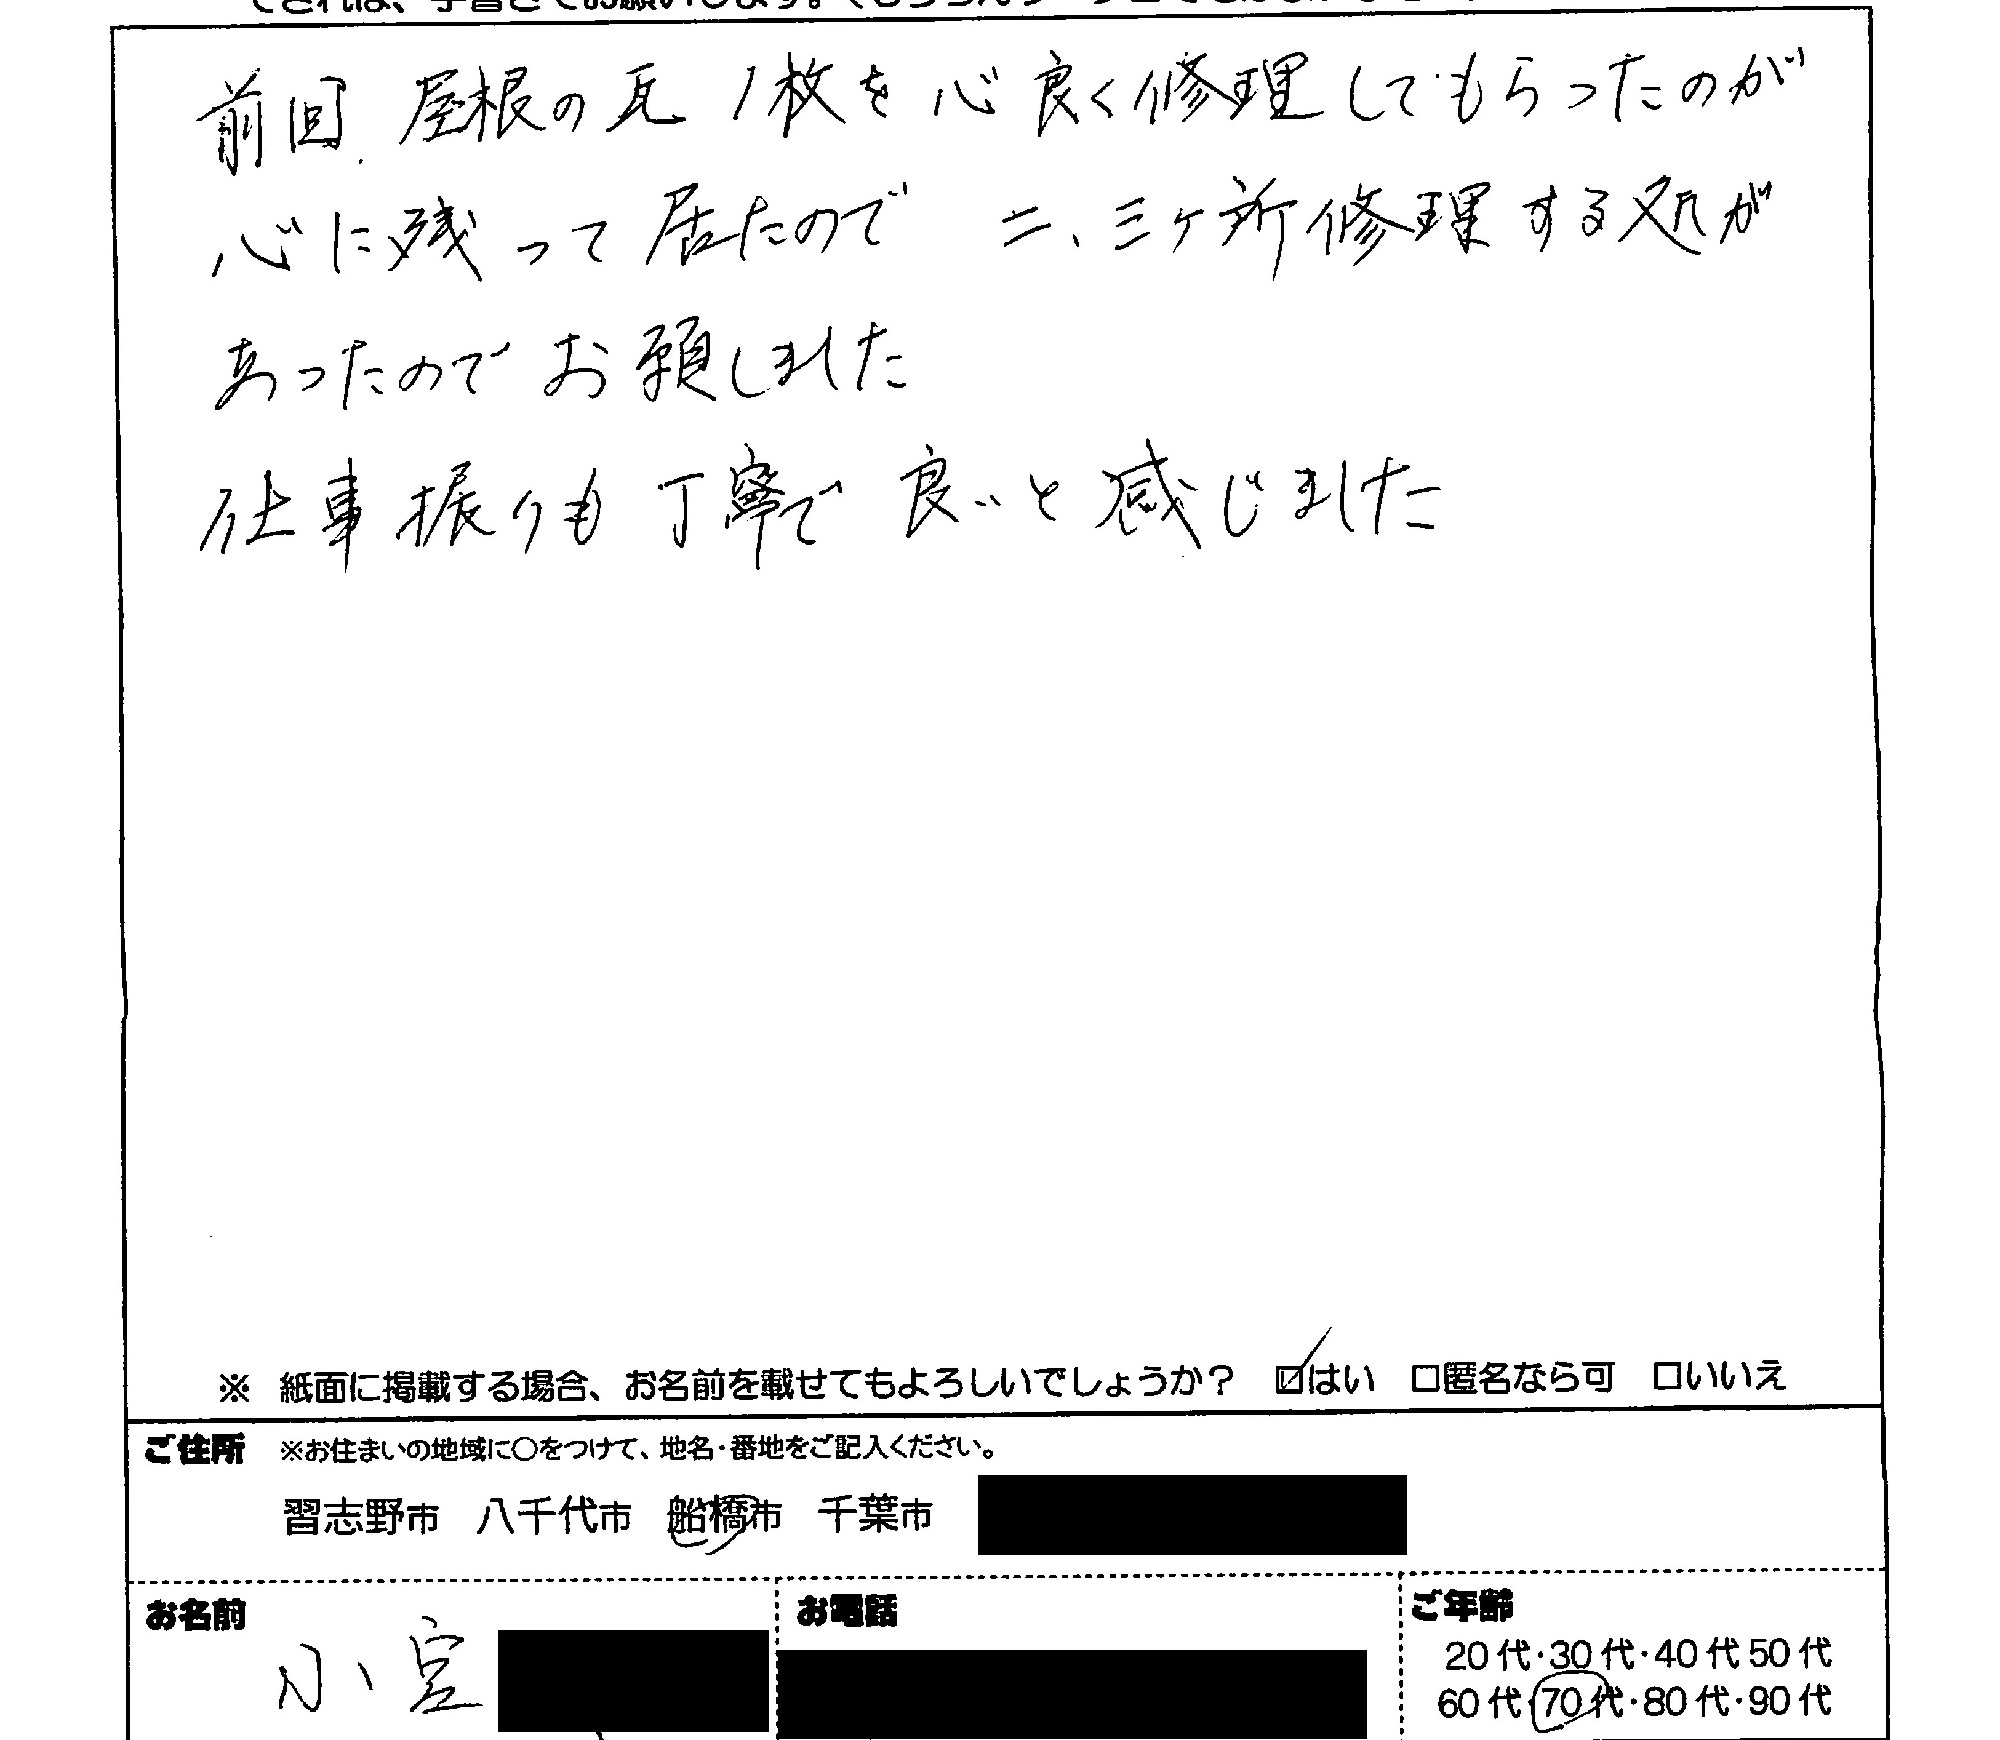 前回、屋根の瓦1枚を心良く修理してもらったのが
心に残って居たので 二、三ヶ所修理する処が
あったのでお願しました
仕事振りも丁寧で良いと感じました
※ 紙面に掲載する場合、お名前を載せてもよろしいでしょうか? ☑はい □匿名なら可 □いいえ
ご住所 ※お住まいの地域に○をつけて、地名・番地をご記入ください。
習志野市 八千代市 船橋市 千葉市
お名前 お電話 ご年齢
小宮
20代・30代・40代50代
60代・70代・80代・90代